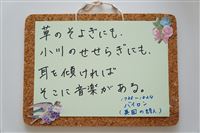 草のそよぎにも、
小川のせせらぎにも、
耳を傾ければ
そこに音楽がある。
1788-1824
バイロン
(英国の詩人)